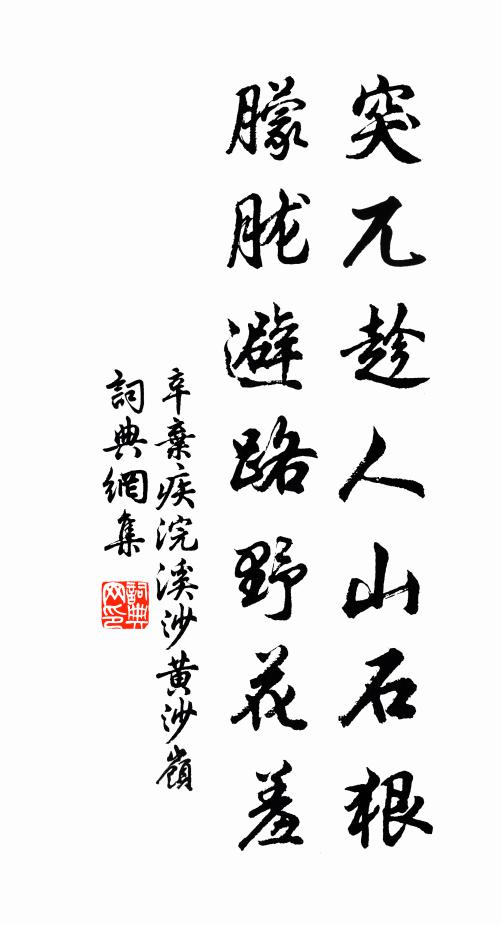 突兀趁人山石狠
朦胧避路野花羞
辛棄疾浣溪沙黄沙嶺
詞典網集
詞典網印